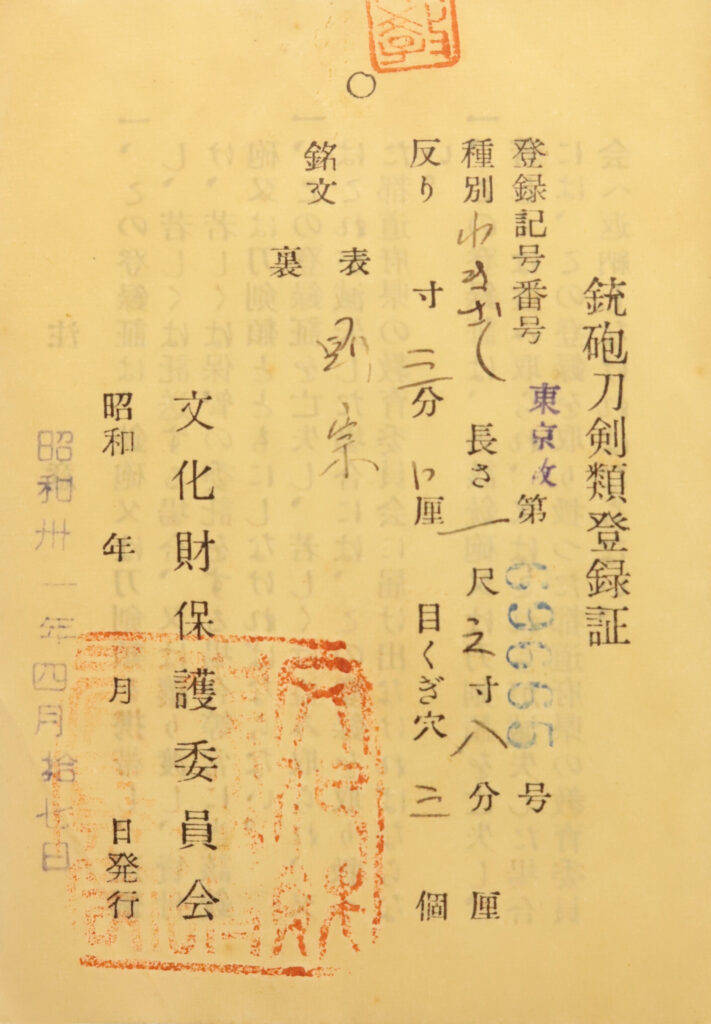 銃砲刀剣類登録証
登録記号番号 東京 第 号
種別 わきざし 長さ 一 尺 寸 八 分 厘
反り 寸 分 厘 目くぎ穴 二 個
銘文 表 則宗
裏
文化財保護委員会
昭和 年 月 日発行
昭和卅一年四月拾七日